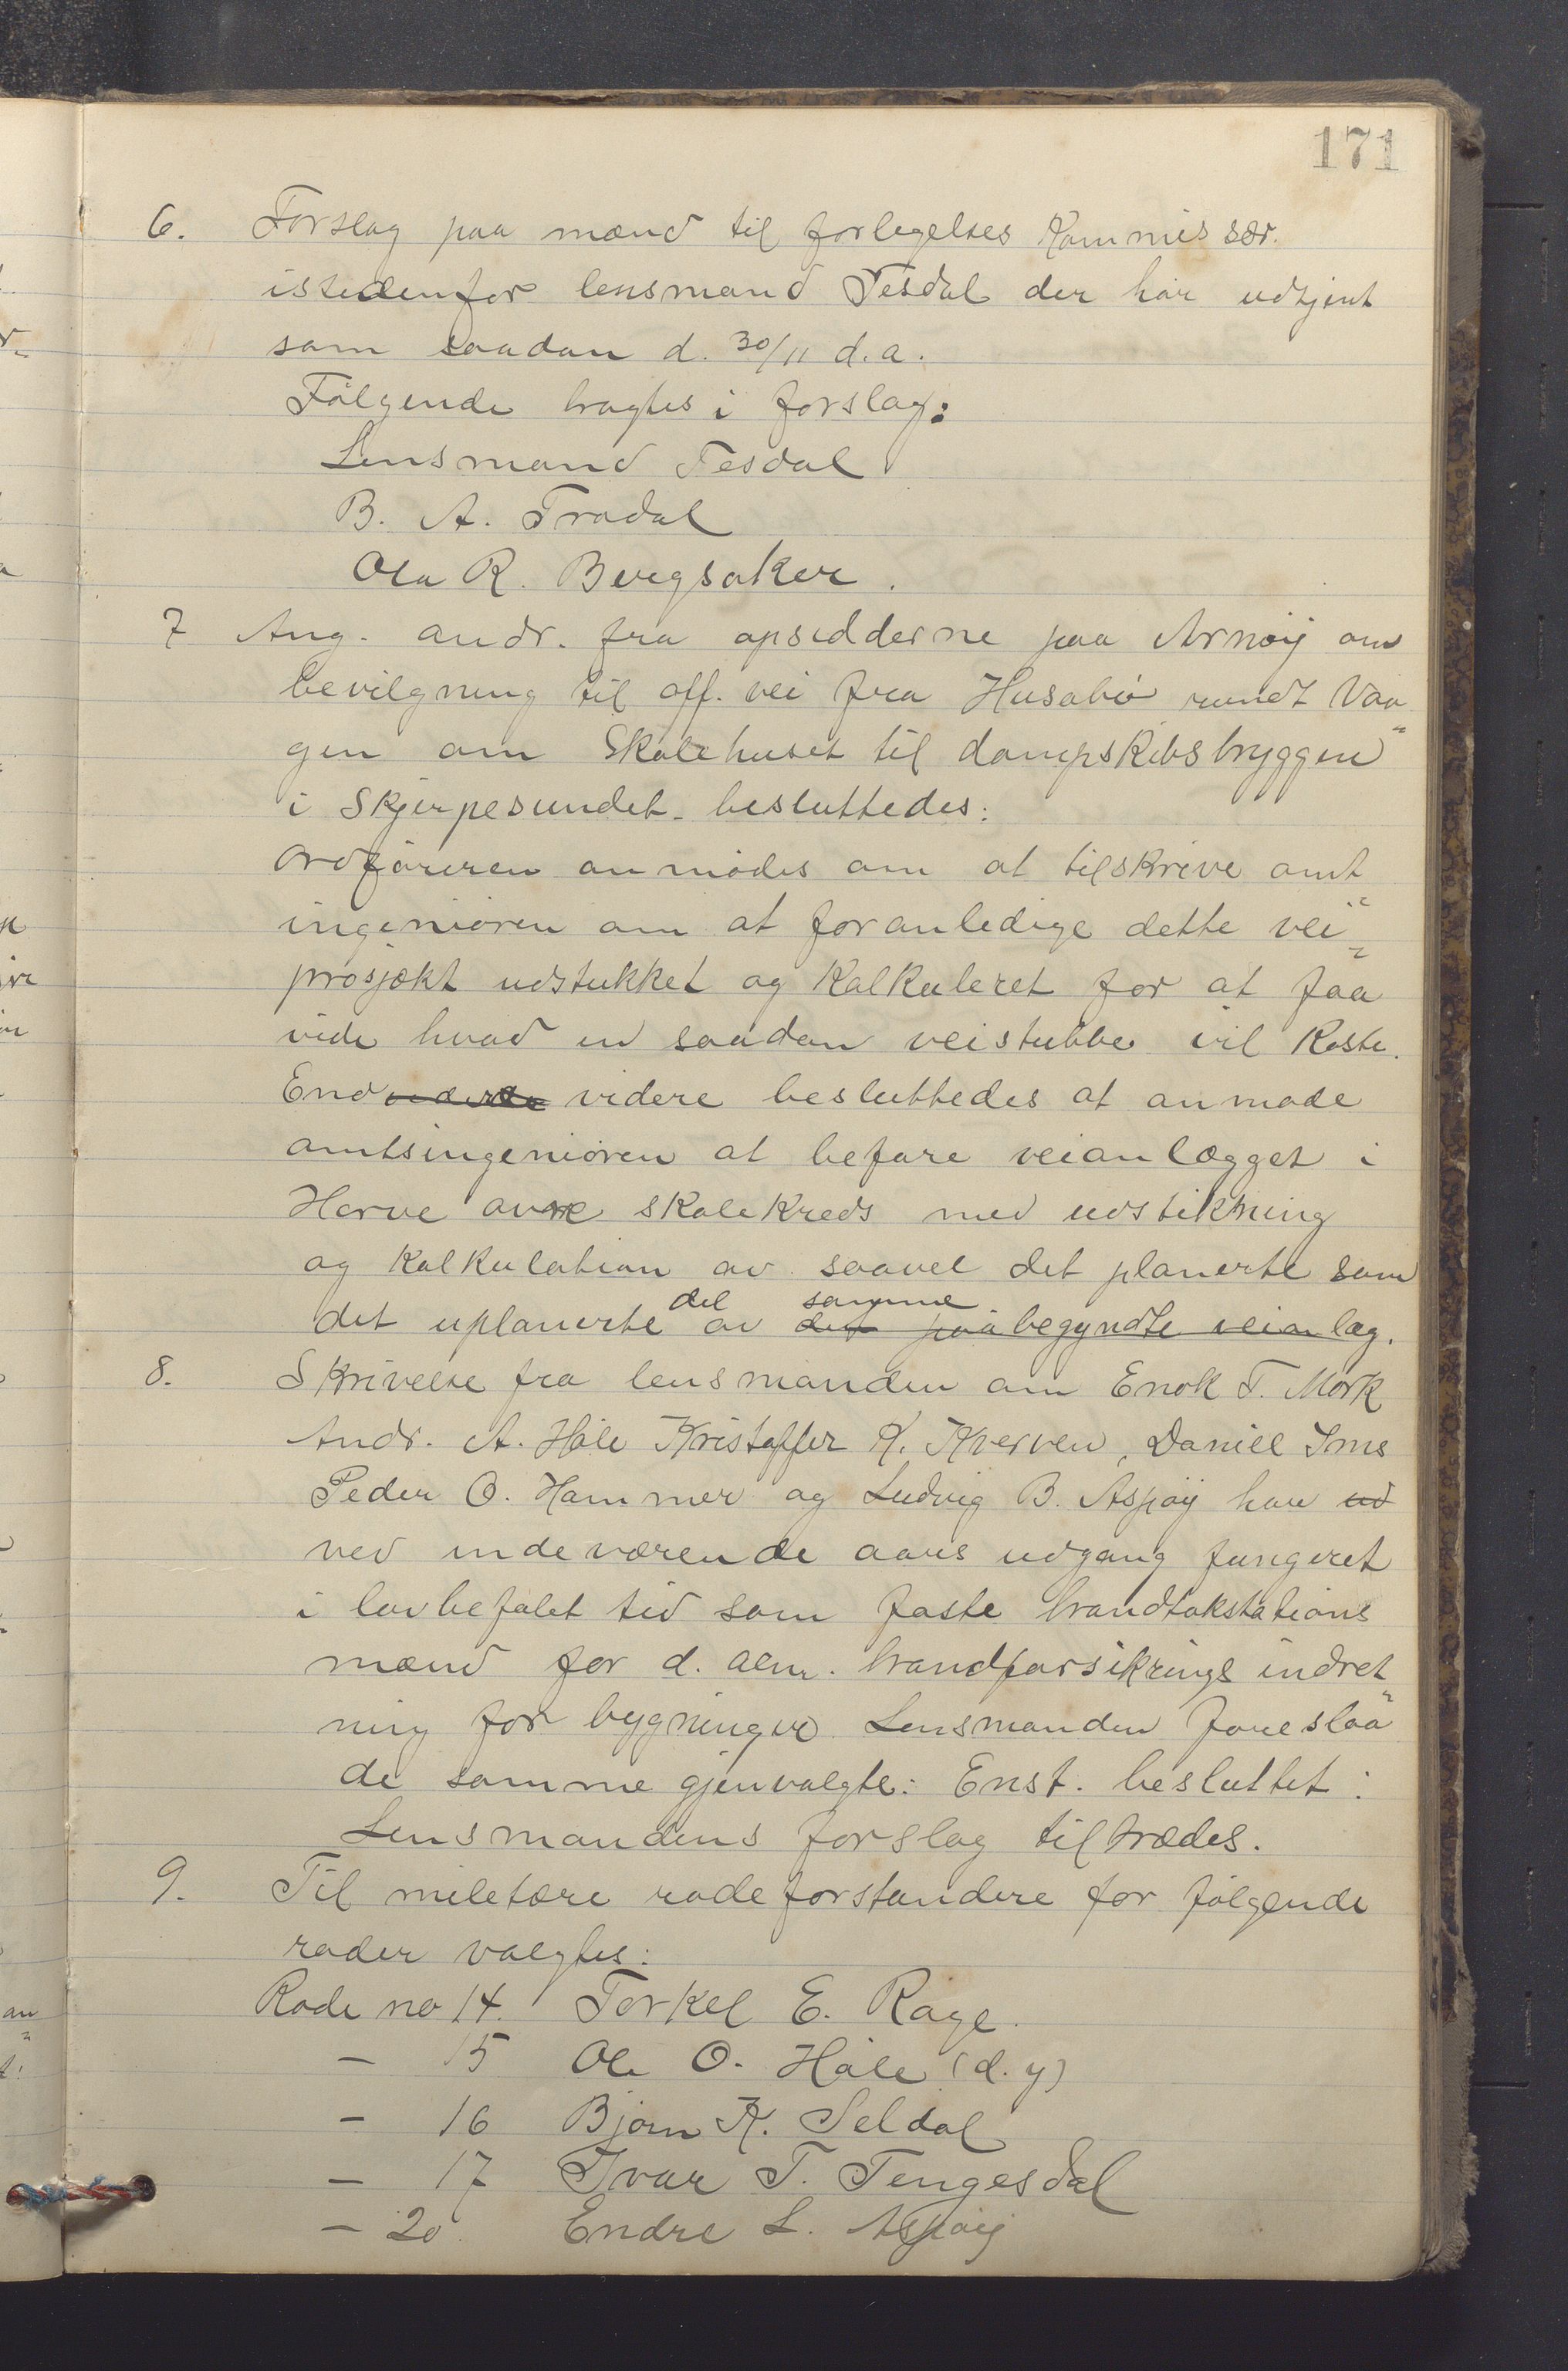 171
6. Forslag paa mænd til forlegelses Kommissær.
istedenfor lensmand Tesdal der har udtjent
som saadan d. 30/11 d.a.
Følgende bragtes i forslag:
Lensmand Tesdal
B. A. Tradal
Ola R. Bergsaker.
7 Ang. andr. fra opsidderne paa Arnøy om
bevilgning til off. vei fra Husabø rundt Vaa
gen om Skolehuset til dampskibsbryggen
i Skjerpesundet besluttedes:
Ordføreren anmodes om at tilskrive amt
ingeniøren om at foranledige dette vei
prosjækt udstukket og kalkuleret for at faa
vide hvad en saadan veistubbe vil koste.
End videre besluttedes at anmode
amtsingeniøren at befare veianlægget i
Herve skolekreds med udstikning
og kalkulation av saavel det planerte som
del samme
det uplanerte av det paabegyndte veianlæg.
8. Skrivelse fra lensmanden om Enok T. Mørk
Andr. A. Håle Kristoffer K. Kverven, Daniel Ims
Peder O. Hammer og Ludvig B. Aspøy har ud
ved indeværende aars udgang fungeret
i lovbefalet tid som faste brandtakstations
mænd for d. alm. brandforsikrings indret
ning for bygninger. Lensmanden foreslaa
de samme gjenvalgte: Enst. besluttet:
Lensmandens forslag tiltrædes.
9. Til miletære rodeforstandere for følgende
roder valgtes:
Rode no 14. Torkel E. Røge.
— 15 Ole O. Håle (d.y)
— 16 Bjørn K. Seldal
— 17 Ivar T. Tengesdal
— 20 Endre L. Aspøy